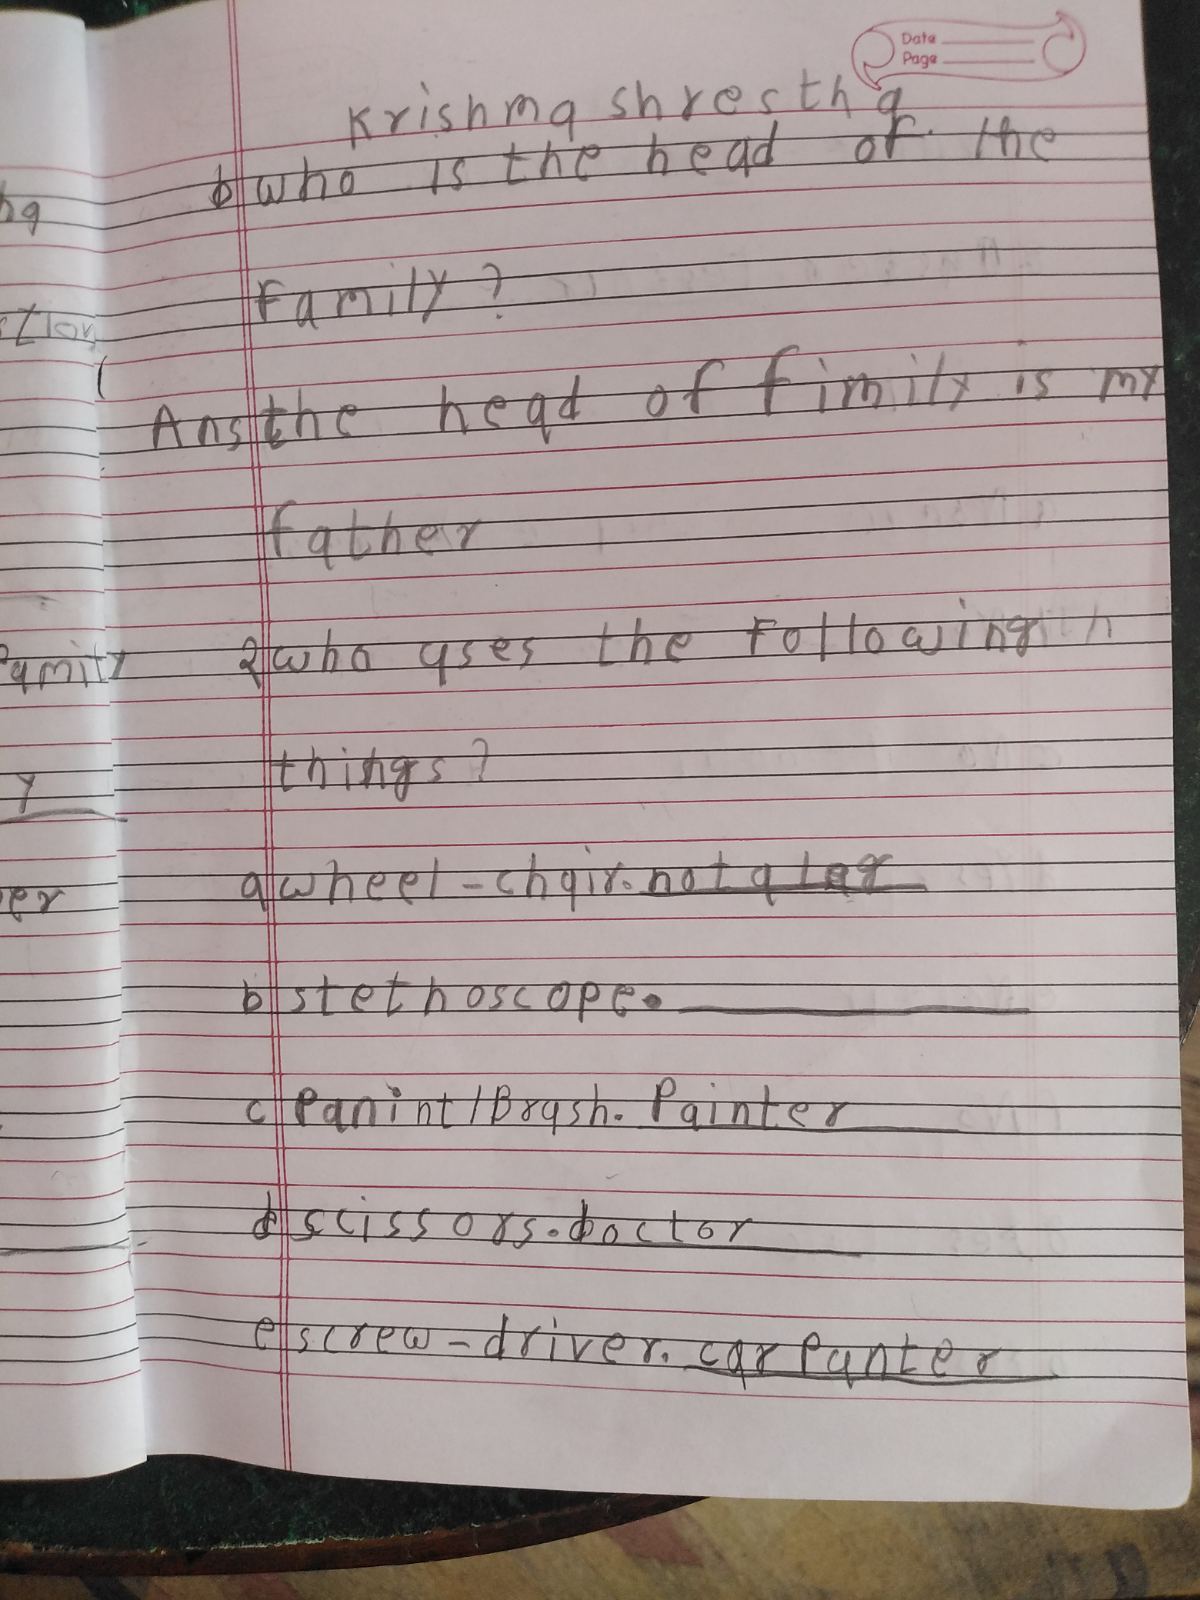 Date
Page
Krishma shrestha
b who is the head of the
family?
Ans the head of fimily is my
father
2 who uses the Following
things?
a wheel-chair. not a
b stethoscope.
c Panint/Brush. Painter
d scissors. doctor
e screw-driver. carPanter
amity
y
er